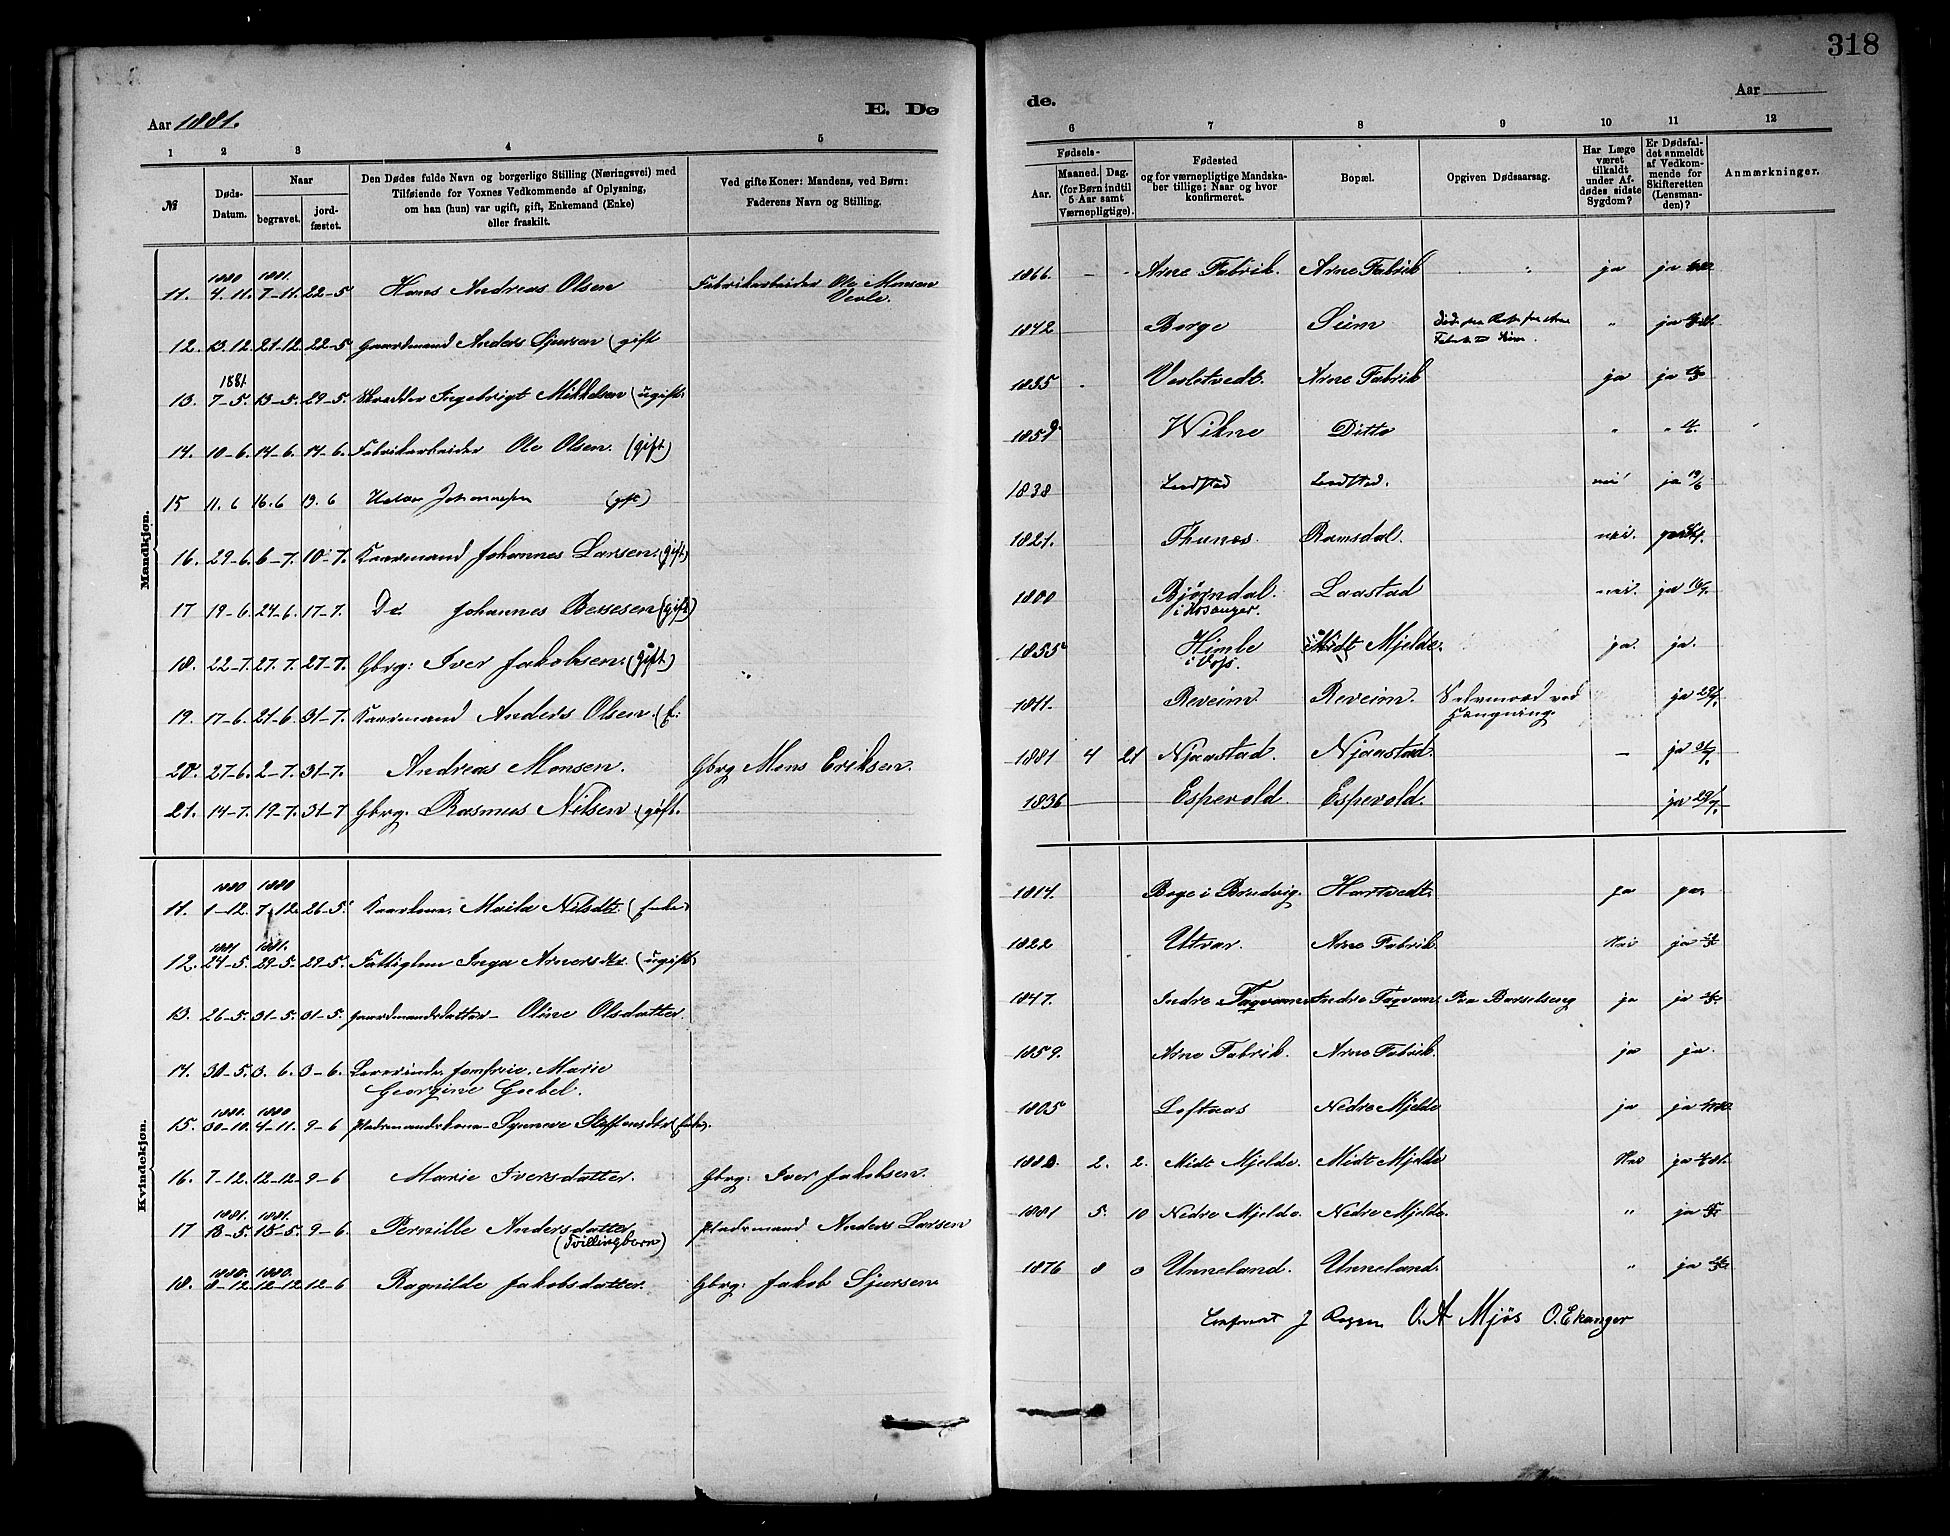 318
Aar 1881.
E. Dø
de.
Aar
1 2 3 4 5
6 7 8 9 10 11 12
№
Døds-Datum.
Naar
begravet.
jord-fæstet.
Den Dødes fulde Navn og borgerlige Stilling (Næringsvei) med
Tilføiende for Voxnes Vedkommende af Oplysning,
om han (hun) var ugift, gift, Enkemand (Enke)
eller fraskilt.
Ved gifte Koner: Mandens, ved Børn:
Faderens Navn og Stilling.
Fødsels-
Aar.
Maaned. Dag.
(for Børn indtil
5 Aar samt
Værnepligtige).
Fødested
og for værnepligtige Mandska-
ber tillige: Naar og hvor
konfirmeret.
Bopæl.
Opgiven Dødsaarsag.
Har Læge
været
tilkaldt
under Af-
dødes sidste
Sygdom?
Er Dødsfal-
det anmeldt
af Vedkom-
mende for
Skifteretten
(Lensman-
den)?
Anmærkninger.
Mandkjøn.
1880 1881.
11. 4-11. 7-11. 22-5 Hans Andreas Olsen Fabrikarbeider Ole Monsen 1866. Arne Fabrik. Arne Fabrik " ja ja
12. 13-12. 21-12. 22-5 Gaardmand Anders Sjursen (gift 1842 Borge " ja
1881.
13. 7-5. 13-5. 29-5. Skrædder Ingebrigt Mikkelsen (ugift. 1835 Arne Fabrik ja ja
14. 10-6. 14-6. 14-6. Fabrikarbeider Ole Olsen. (gift) Wikne Ditto " "
15 11.6 16.6 19.6 Johannesen (gift) 1838 nei ja 19/6
16. 29-6. 6-7. 10-7. Kaarmand Johannes Larsen. (gift) 1821. Thunæs Ramsdal. nei.
17 19-6. 24-6. 17-7. Do Johannes Bessesen (gift) 1800 Bjørndal. Laastad nei. ja
i Hosanger.
18. 22-7. 27.7. 27-7. Gbrg: Iver Jakobsen. (gift) 1855 Himle Midt Mjelde. ja. ja.
i Vojs.
19. 17-6. 21-6. 31-7. Kaarmand Anders Olsen. (E: 1811. Reveim. Reveim. Selvmord ved ja
Hængning.
20. 27-6. 2-7. 31-7. Andreas Monsen. Gbrg Mons Eriksen. 1881 4 21 Njaastad. Njaastad. - ja
21. 14-7. 19-7. 31-7 Gbrg. Rasmus Nilsen (gift. 1836 Espevold. Espevold. ja
Kvindekjøn.
1880 1880
11. 1-12. 7-12. 26-5. Kaarkone. Marta Nilsdtr. (Enke) 1814. Borge i Bruvig. Hartvedt. ja ja.
1881. 1881.
12. 24-5. 29-5. 29-5. Fattiglem Inga Arnesdtr. (ugift) 1822 Utvær. Arne Fabrik Nei ja
13. 26-5. 31-5. 31-5. Gaardmandsdatter - Oline Olsdatter. 1847. Indre Tagvam Indre Tagvam. Paa Barselseng ja ja
14. 30-5. 3.6. 3-6. Lærerinde, Jomfrue, Marie 1859. Arne Fabrik. Arne Fabrik. ja ja.
Georgine Goebel.
1880. 1880
15. 30-10. 4-11. 9-6 Pladsmandskone - Synneve Steffensdtr (Enke). 1805 Loftaas Nedre Mjelde ja ja
16. 7-12. 12-12. 9-6 Marie Iversdatter. Gbrg: Iver Jakobsen. 1880. 2. 2. Midt Mjelde. Midt Mjelde Nei ja
1881. 1881.
17 13-5. 15-5. 9-6. Pernille Andersdatter Pladsmand Anders Larsen 1881 5. 10 Nedre Mjelde. Nedre Mjelde. " ja
(Tvillingbarn)
1880. 1880.
18. 8-12. 12-12 12-6 Ragnilde Jakobsdatter. Gbrg: Jakob Sjursen 1876 8 0 Unneland. Unneland. " ja
O. A Mjøs O. Ekanger